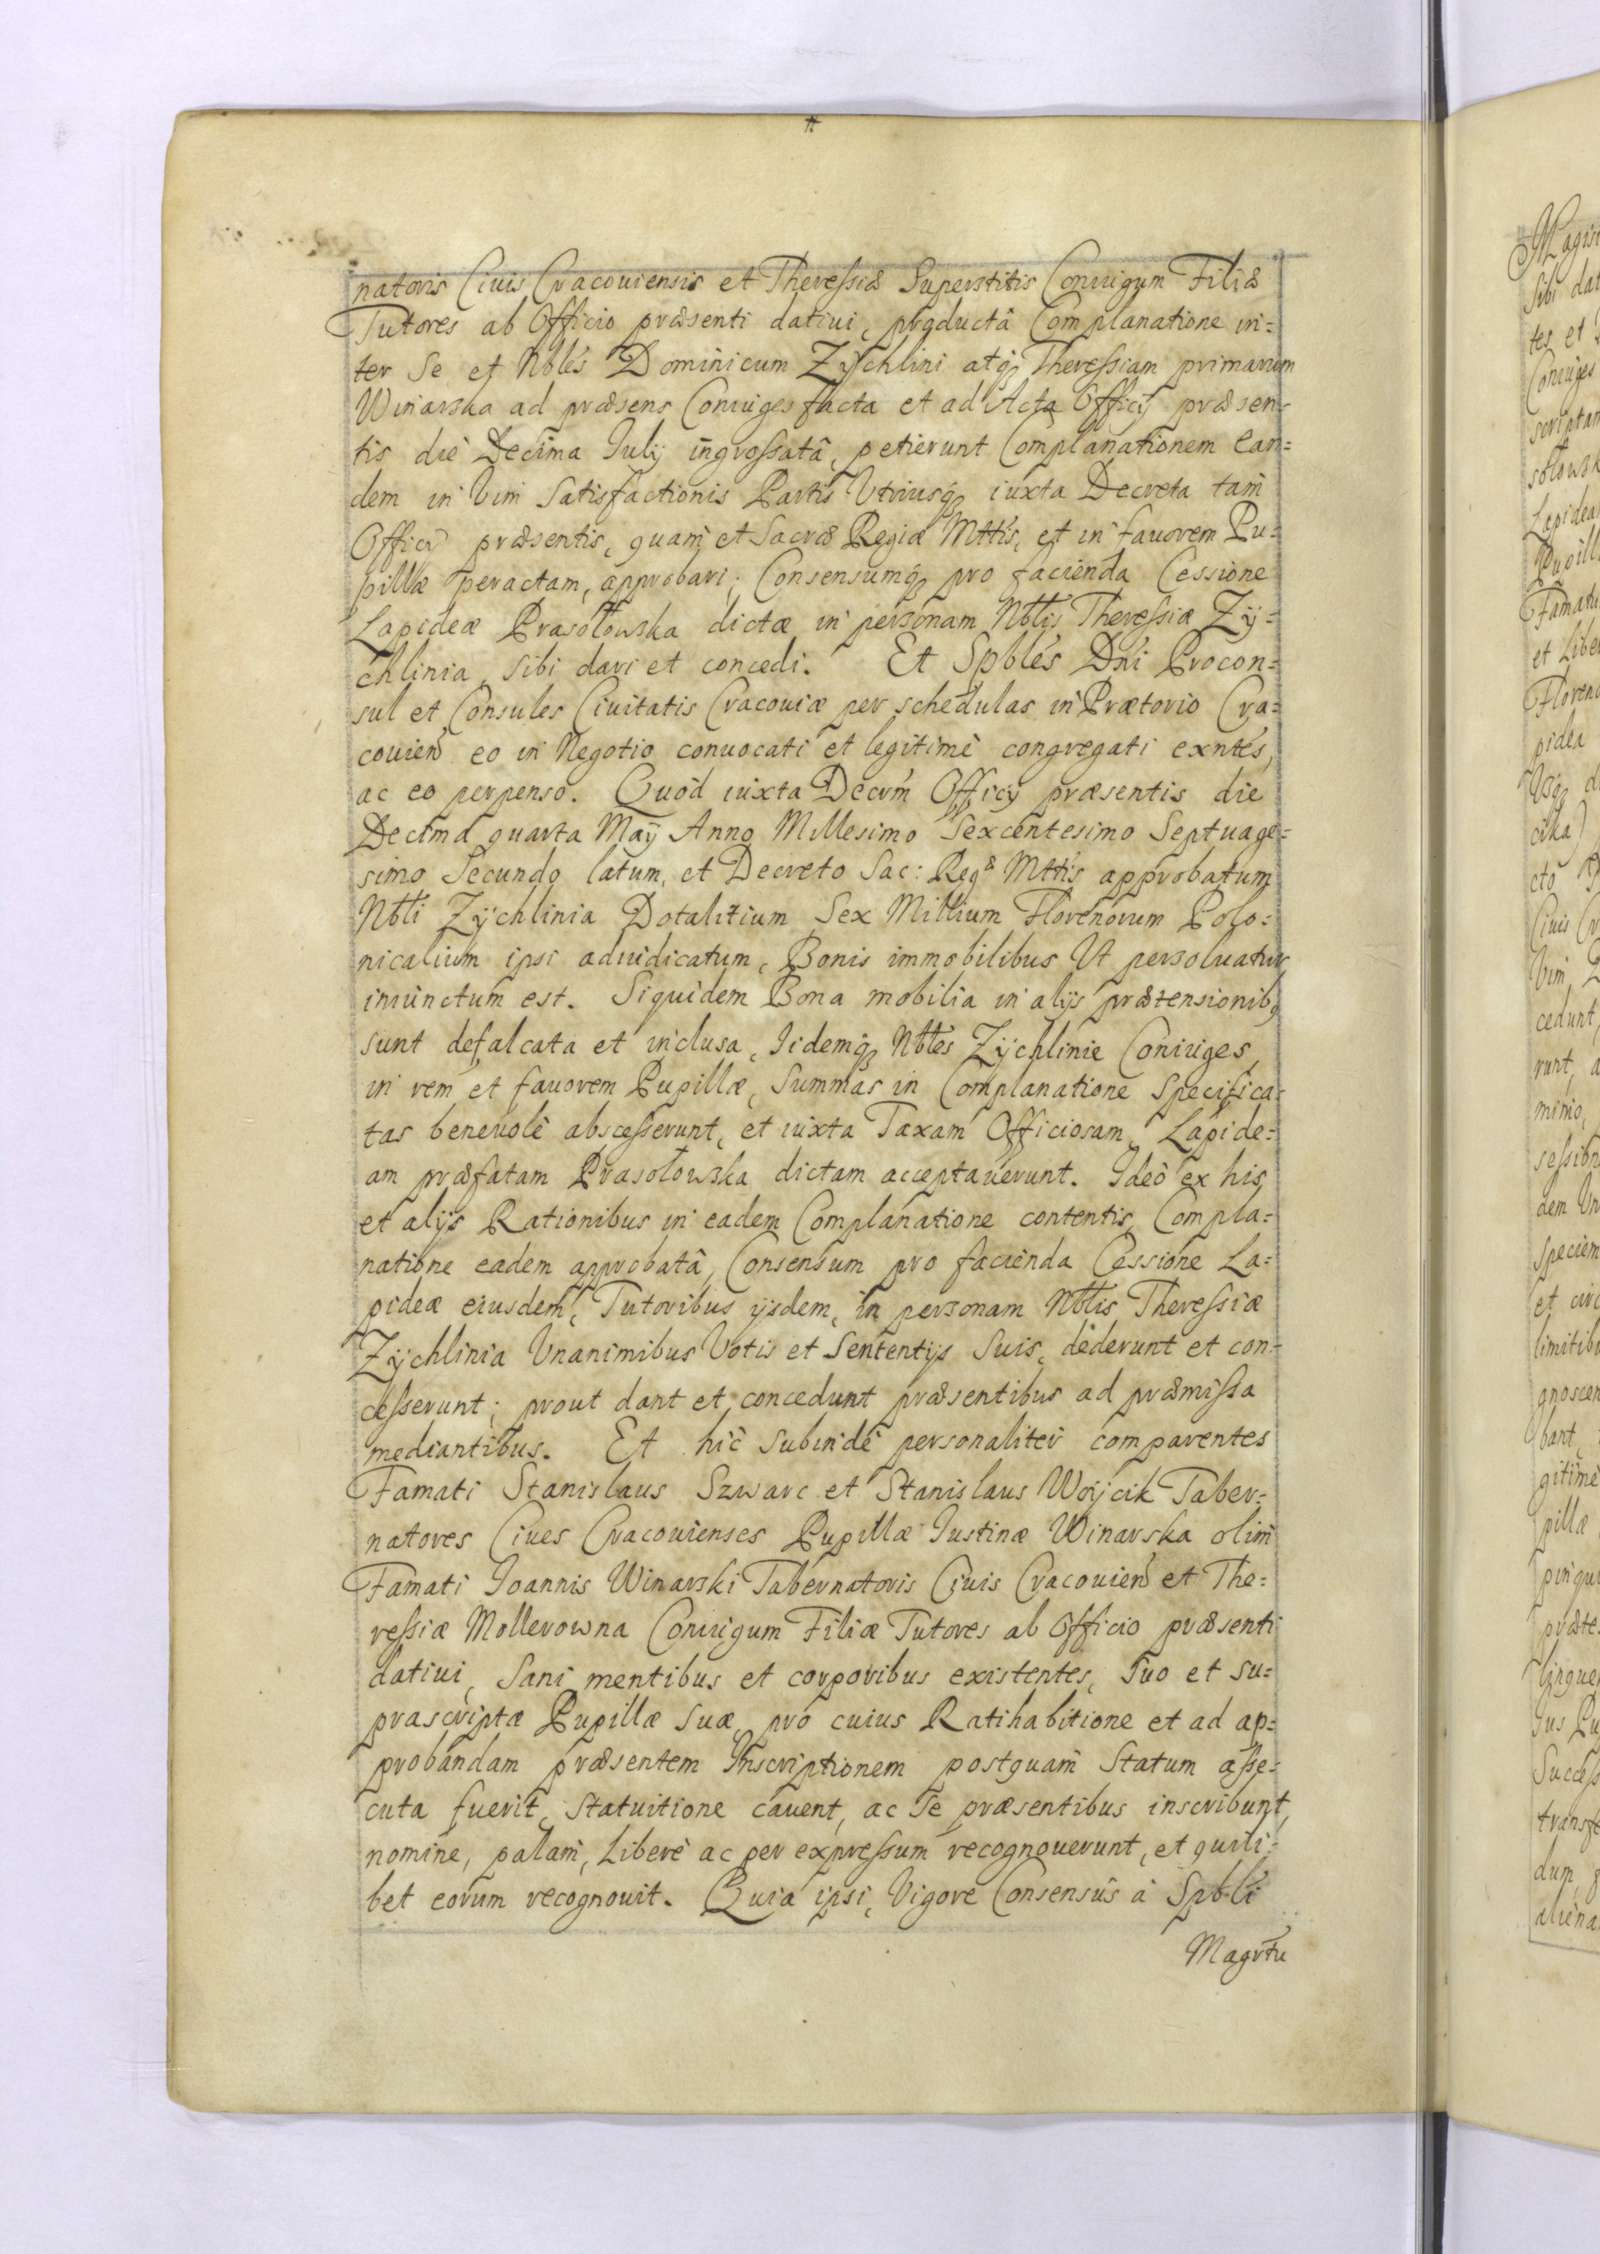 natoris Ciuis Cracouiensis et Theressiæ Superstitis Coniugum Filiæ
Tutores ab Officio præsenti datiui, productâ Complanatione in=
ter Se et Nbles Dominicum Zÿchlini atq3 Theressiam primarum
Winarska ad præsens Coniuges facta et ad Acta Officÿ præsen=
tis die Decima Iulÿ ingrossatâ, petierunt Complanationem Ean=
dem in Vim Satisfactionis Partis Vtriusq3 iuxta Decreta tam
Officÿ præsentis, quam et Sacræ Regiæ Mttis, et in fauorem Pu=
pillæ peractam, approbari; Consensumq3 pro facienda Cessione
Lapideæ Prasołowska dictæ in personam Nbtis Theressiæ Zÿ=
chlinia, Sibi dari et concedi. Et Spbles Dni Procon=
sul et Consules Ciuitatis Cracouiæ per schedulas in Prætorio Cra=
couien eo in Negotio conuocati et legitimè congregati exntes,
ac eo perpenso. Quòd iuxta Decrm Officÿ præsentis die
Decima quarta Maÿ Anno Millesimo Sexcentesimo Septuage=
simo Secundo latum, et Decreto Sac: Regæ Mttis approbatum
Nbli Zÿchlinia Dotalitium Sex Millium Florenorum Polo=
nicalium ipsi adiudicatum, Bonis immobilibus Vt persoluatur
iniunctum est. Siquidem Bona mobilia in alÿs prætensionib9
sunt defalcata et inclusa, Iidemq3 Nbles Zÿchlinie Coniuges
in rem et fauorem Pupillæ, Summas in Complanatione Specifica=
tas beneuolè abscesserunt, et iuxta Taxam Officiosam, Lapide=
am præfatam Prasołowska dictam acceptauerunt. Ideò ex his
et alÿs Rationibus in eadem Complanatione contentis, Compla=
natione eadem approbatâ, Consensum pro facienda Cessione La=
pideæ eiusdem, Tutoribus ÿsdem, in personam Nbtis Theressiæ
Zÿchlinia Vnanimibus Votis et Sententÿs Suis, dederunt et con=
cesserunt; prout dant et concedunt præsentibus ad præmissa
mediantibus. Et hic Subinde personaliter comparentes
Famati Stanislaus Szwarc et Stanislaus Woÿcik Taber=
natores Ciues Cracouienses Pupillæ Iustinæ Winarska olim
Famati Ioannis Winarski Tabernatoris Ciuis Cracouien et The=
ressiæ Mollerowna Coniugum Filiæ Tutores ab Officio præsenti
datiui, Sani mentibus et corporibus existentes, Suo et su=
prascriptæ Pupillæ Suæ, pro cuius Ratihabitione et ad ap=
probandam præsentem Inscriptionem postquam Statum asse=
cuta fuerit, Statuitione cauent, ac Se præsentibus inscribunt,
nomine, palam, Liberè ac per expressum recognouerunt, et quili=
bet eorum recognouit. Quia ipsi, Vigore Consensûs à Spbli
Magrtu